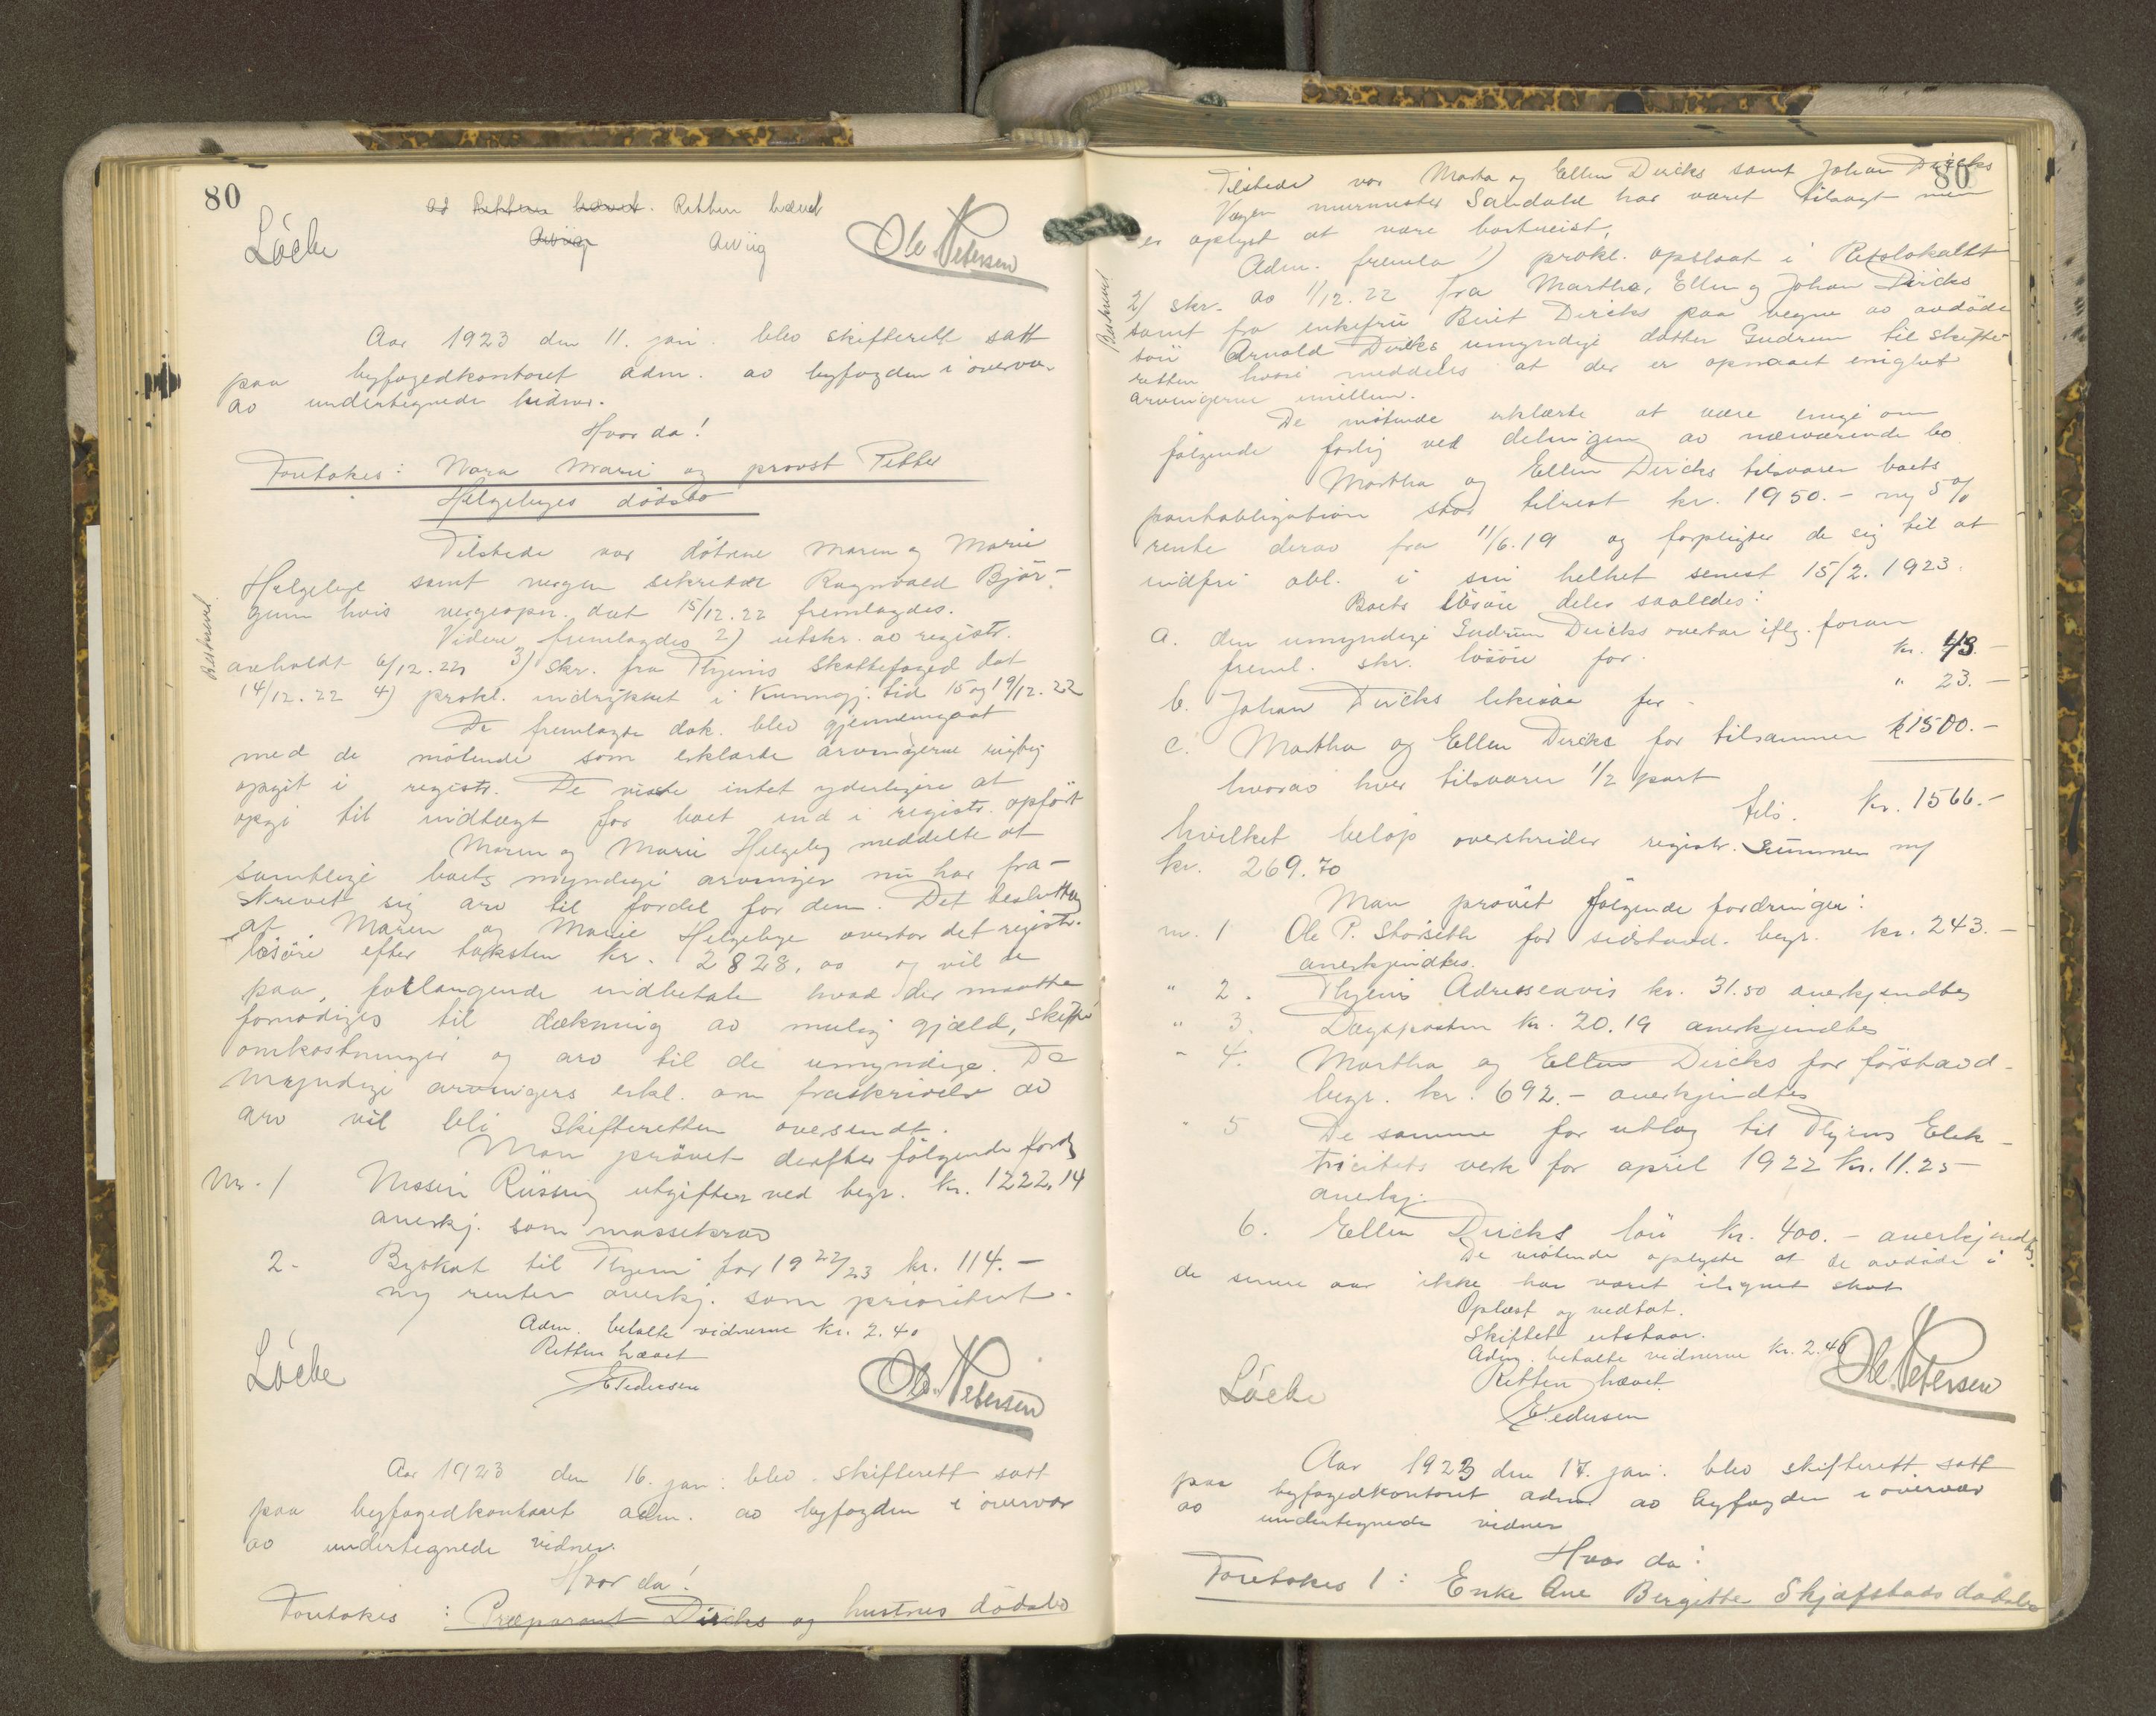 80
ad Retten hævet. Retten hævet
Løche
Ole Petersen
Aar 1923 den 11. jan. blev skifterett satt
paa byfogedkontoret adm. av byfogden i overvær
av undertegnede vidner.
Hvor da!
Foretokes: Nora Marie og provst Petter
Helgebyes dødsbo
Tilstede var døtrene Maren og Marie
Helgebye samt vergen sekretær Ragnvald Bjør-
gum hvis vergeopn. dat 15/12.22 fremlagdes.
Videre fremlagdes 2) utskr. av registr.
avholdt 6/12.22, 3) Skr. fra Thjems Skattefoged dat
14/12.22 4) prokl. indrykket i Kunngj. tid 15 og 19/12.22
Beskrevet
De fremlagte dok. blev gjennemgaat
med de møtende som erklærte arvingerne rigtig
opgit i registr. De visste intet yderligere at
opgi til indtægt for boet end i registr. opført
Maren og Marie Helgeby meddelte at
samtlige boets myndige arvinger nu har fra-
skrevet sig arv til fordel for dem. Det besluttes
at Maren og Marie Helgebye overtar det registr.
løsøre efter taksten kr. 2828,00 og vil de
paa forlangende indbetale hvad der maatte
fornødiges til dækning av mulig gjæld, skifte
omkostninger og arv til de umyndige. De
myndige arvingers erkl. om fraskrivelse av
arv vil bli Skifteretten oversendt.
Man prøvet derefter følgende fordr
Nr. 1 utgifter ved begr. kr. 1222,14
anerkj. som massekrav
2. Byskat til Thjem for 1922/23 kr. 114.-
og renter anerkj. som prioritert.
Adm. betalte vidnerne kr. 2.40
Retten hævet
EPedersen
Løche
Ole Petersen
Aar 1923 den 16. jan. blev skifterett satt
paa byfogedkontoret adm. av byfogden i overvær
av undertegnede vidner.
Hvor da!
Foretokes: Præparant Dircks og hustrus dødsbo
80
Tilstede var Marta og Ellen Dircks samt Johan Dircks
Vergen murmester Sandahl har været tilsagt men
er oplyst at være bortreist.
Adm. fremla 1) prokl. opslaat i Retslokalet
2) skr. av 1/12.22 fra Martha, Ellen og Johan Dircks
Beskrevet
samt fra enkefru Dircks paa vegne av avdøde
søn Arnold Dircks umyndige datter Gudrun til skifte-
retten hvori meddeles at der er opnaaet enighet
arvingerne imellem.
De møtende erklærte at være enige om
følgende forlig ved delingen av nærværende bo
Martha og Ellen Dircks tilsvarer boets
pantobligation stor tilrest kr. 1950.- og 5%
rente derav fra 11/6.19 og forpligter de sig til at
indfri obl. i sin helhet senest 15/2.1923.
Boets løsøre deles saaledes:
a. den umyndige Gudrun Dircks overtar iflg. foran
freml. skr. løsøre for kr. 43.-
b. Johan Dircks likesaa for " 23.-
c. Martha og Ellen Dircks for tilsammen 1500.-
hvorav hver tilsvarer 1/2 part
tils. kr. 1566.-
hvilket beløp overskrider registr. summen m/
kr. 269.70
Man prøvet følgende fordringer:
nr. 1 Ole P. Storseth for sidstavd. begr. kr. 243.-
anerkjendtes.
" 2. Thjems Adresseavis kr. 31.50 anerkjendtes
" 3. Dagsposten kr. 20.19 anerkjendtes
" 4. Martha og Ellen Dircks for førstavd-
begr. kr. 692.- anerkjendtes
" 5 De samme for utlæg til Thjems Elek-
tricitets verk for april 1922 kr. 11.25-
anerkj.
6. Ellen Dircks løn kr. 400.- anerkjendtes.
De møtende oplyste at de avdøde i
de senere aar ikke har været ilignet skat
Oplæst og vedtat.
Skiftet utstaar.
Adm. betalte vidnerne kr. 2.40
Retten hævet.
EPedersen
Løche
Ole Petersen
Aar 1923 den 17. jan. blev skifterett satt
paa byfogedkontoret adm. av byfogden i overvær
av undertegnede vidner
Hvor da:
Foretokes 1: Enke Ane Bergitte Skjefstads dødsbo